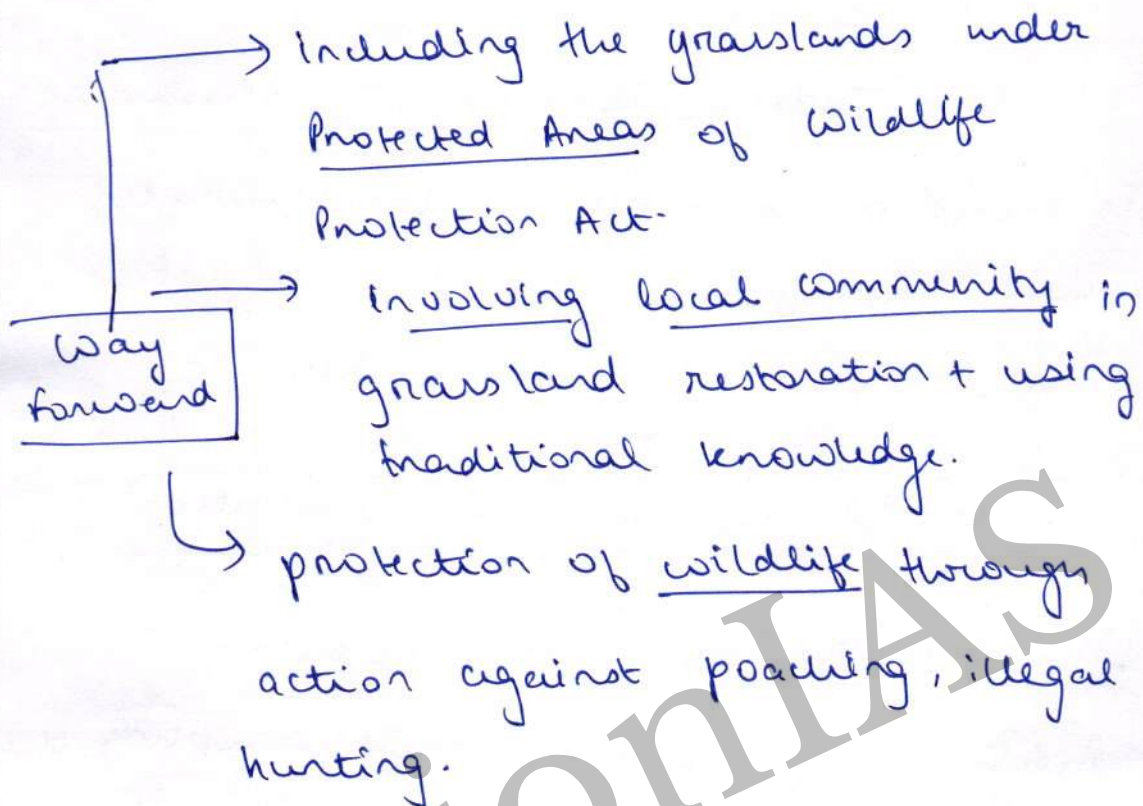 including the grasslands under
Protected Areas of Wildlife
Protection Act.
involving local community in
grassland restoration + using
traditional knowledge.
Way
forward
protection of wildlife through
action against poaching, illegal
hunting.
onIAS